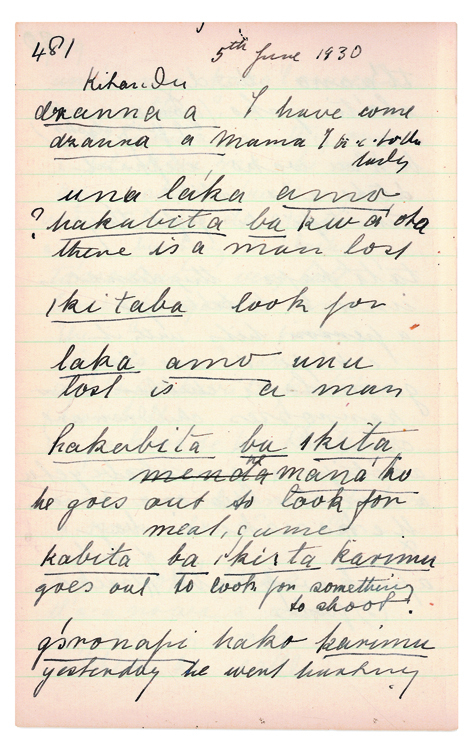 481
5th June 1930
Kihandu
dzanna a I have come
dzanna a mama I have come to the
lady
una láka amo
? hakabita ba kwa ota
there is a man lost
ikitaba look for
laka amo unu
lost is a man
hakabita ba ikita
menda mana ko
he goes out to look for
meat, game
kabita ba ikirta karimu
goes out to look for something
to shoot?
hako karimu
yesterday he went hunting